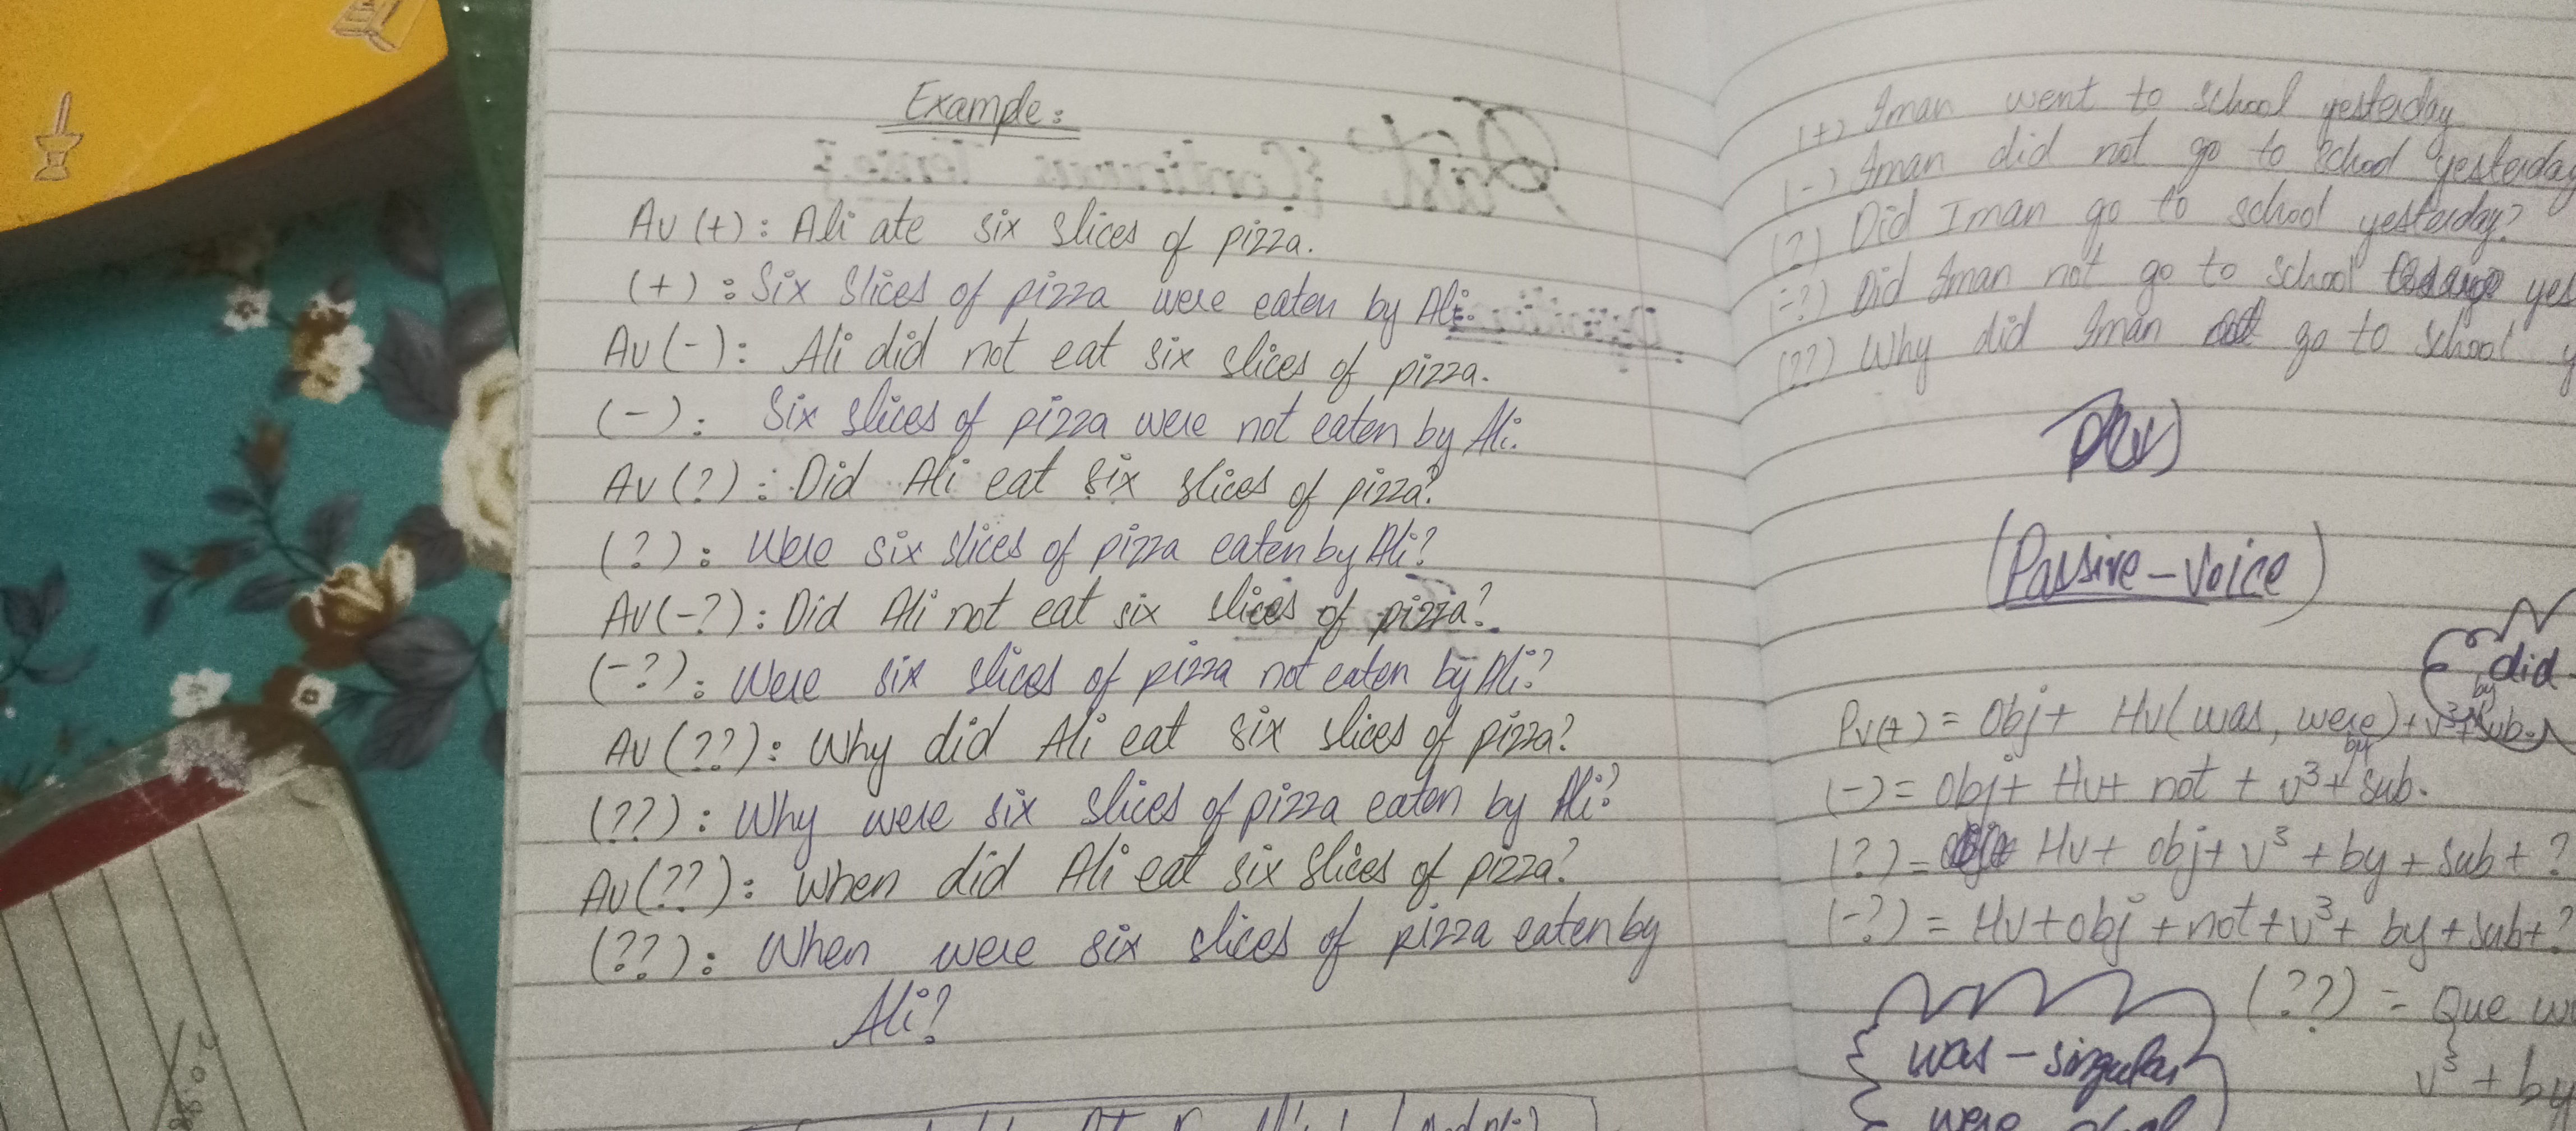 Example:
Av (+): Ali ate six slices of pizza.
(+): Six slices of pizza were eaten by Ali.
Av (-): Ali did not eat six slices of pizza.
(-): Six slices of pizza were not eaten by Ali.
Av (?): Did Ali eat six slices of pizza?
(?): Were six slices of pizza eaten by Ali?
Av (-?): Did Ali not eat six slices of pizza?
(-?): Were six slices of pizza not eaten by Ali?
Av (??): Why did Ali eat six slices of pizza?
(??): Why were six slices of pizza eaten by Ali?
Av (??): When did Ali eat six slices of pizza?
(??): When were six slices of pizza eaten by
Ali?
(+) Iman went to school yesterday
(-) Iman did not go to school yesterday
(?) Did Iman go to school yesterday?
(-?) Did Iman not go to school yes
(??) Why did Iman go to school y
(Passive-Voice)
did
Pv(+) = Obj + Hv (was, were) + v³ + by sub.
(-) = Obj + Hv + not + v³ + by sub.
(?) = Hv + obj + v³ + by + sub + ?
(-?) = Hv + obj + not + v³ + by + sub + ?
(??) = Que w
v³ + by
was - singular
were